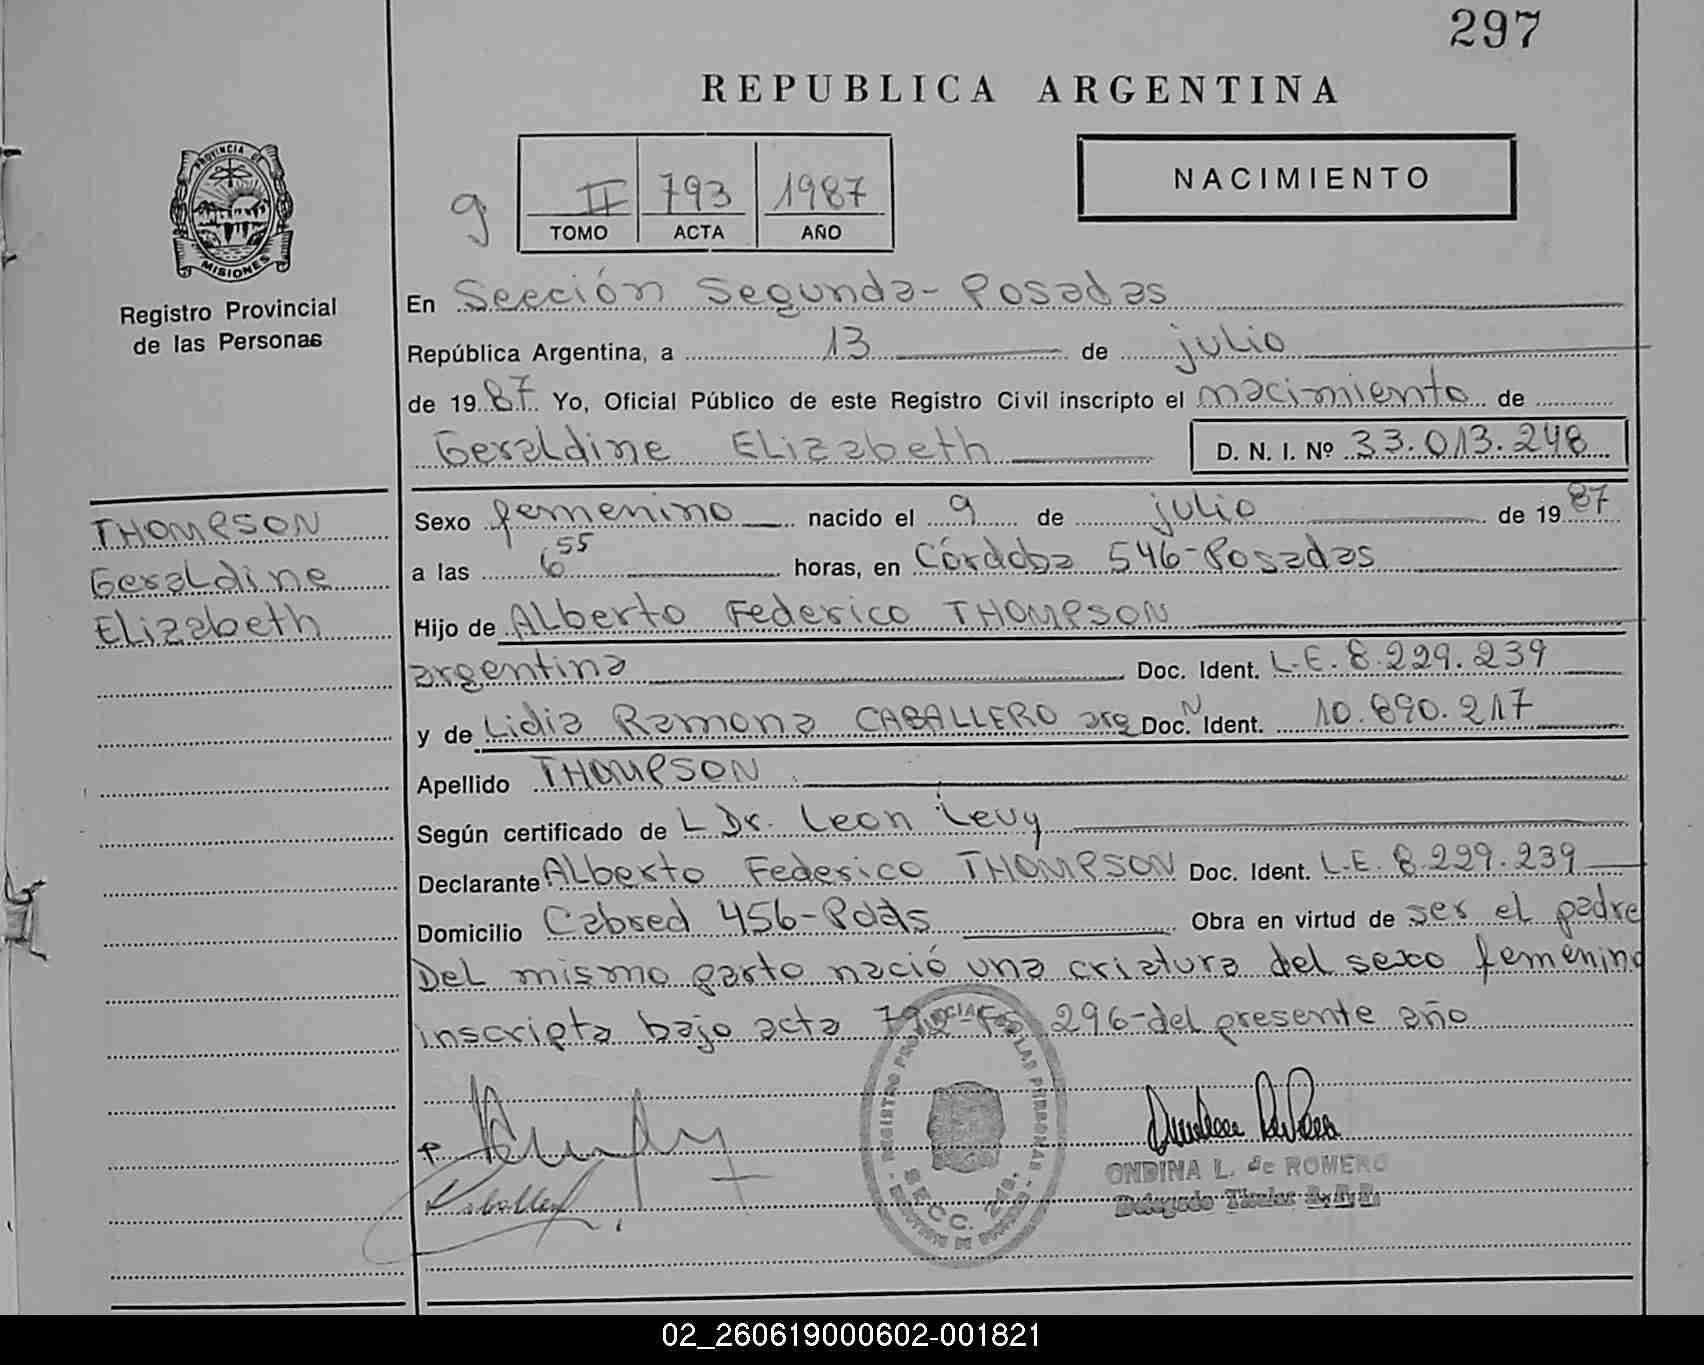 297
REPUBLICA ARGENTINA
PROVINCIA DE
MISIONES
Registro Provincial
de las Personas
g
II 793 1987
TOMO ACTA AÑO
NACIMIENTO
En Sección Segunda - Posadas
República Argentina, a 13 de julio
de 1987 Yo, Oficial Público de este Registro Civil inscripto el nacimiento de
Geraldine Elizabeth D. N. I. Nº 33.013.248
THOMPSON
Geraldine
Elizabeth
Sexo femenino nacido el 9 de julio de 1987
a las 6 55 horas, en Córdoba 546-Posadas
Hijo de Alberto Federico THOMPSON
argentina Doc. Ident. L.E. 8.229.239
y de Lidia Ramona CABALLERO arg Doc. Ident. 10.890.217
Apellido THOMPSON
Según certificado de L Dr. Leon Levy
Declarante Alberto Federico THOMPSON Doc. Ident. L.E. 8.229.239
Domicilio Cabred 456-Pdas Obra en virtud de ser el padre
Del mismo parto nació una criatura del sexo femenino
inscripta bajo acta 792-Fo 296-del presente año
REGISTRO PROVINCIAL DE LAS PERSONAS
SECC. 2da.
ONDINA L. de ROMERO
Delegado Titular
02_260619000602-001821